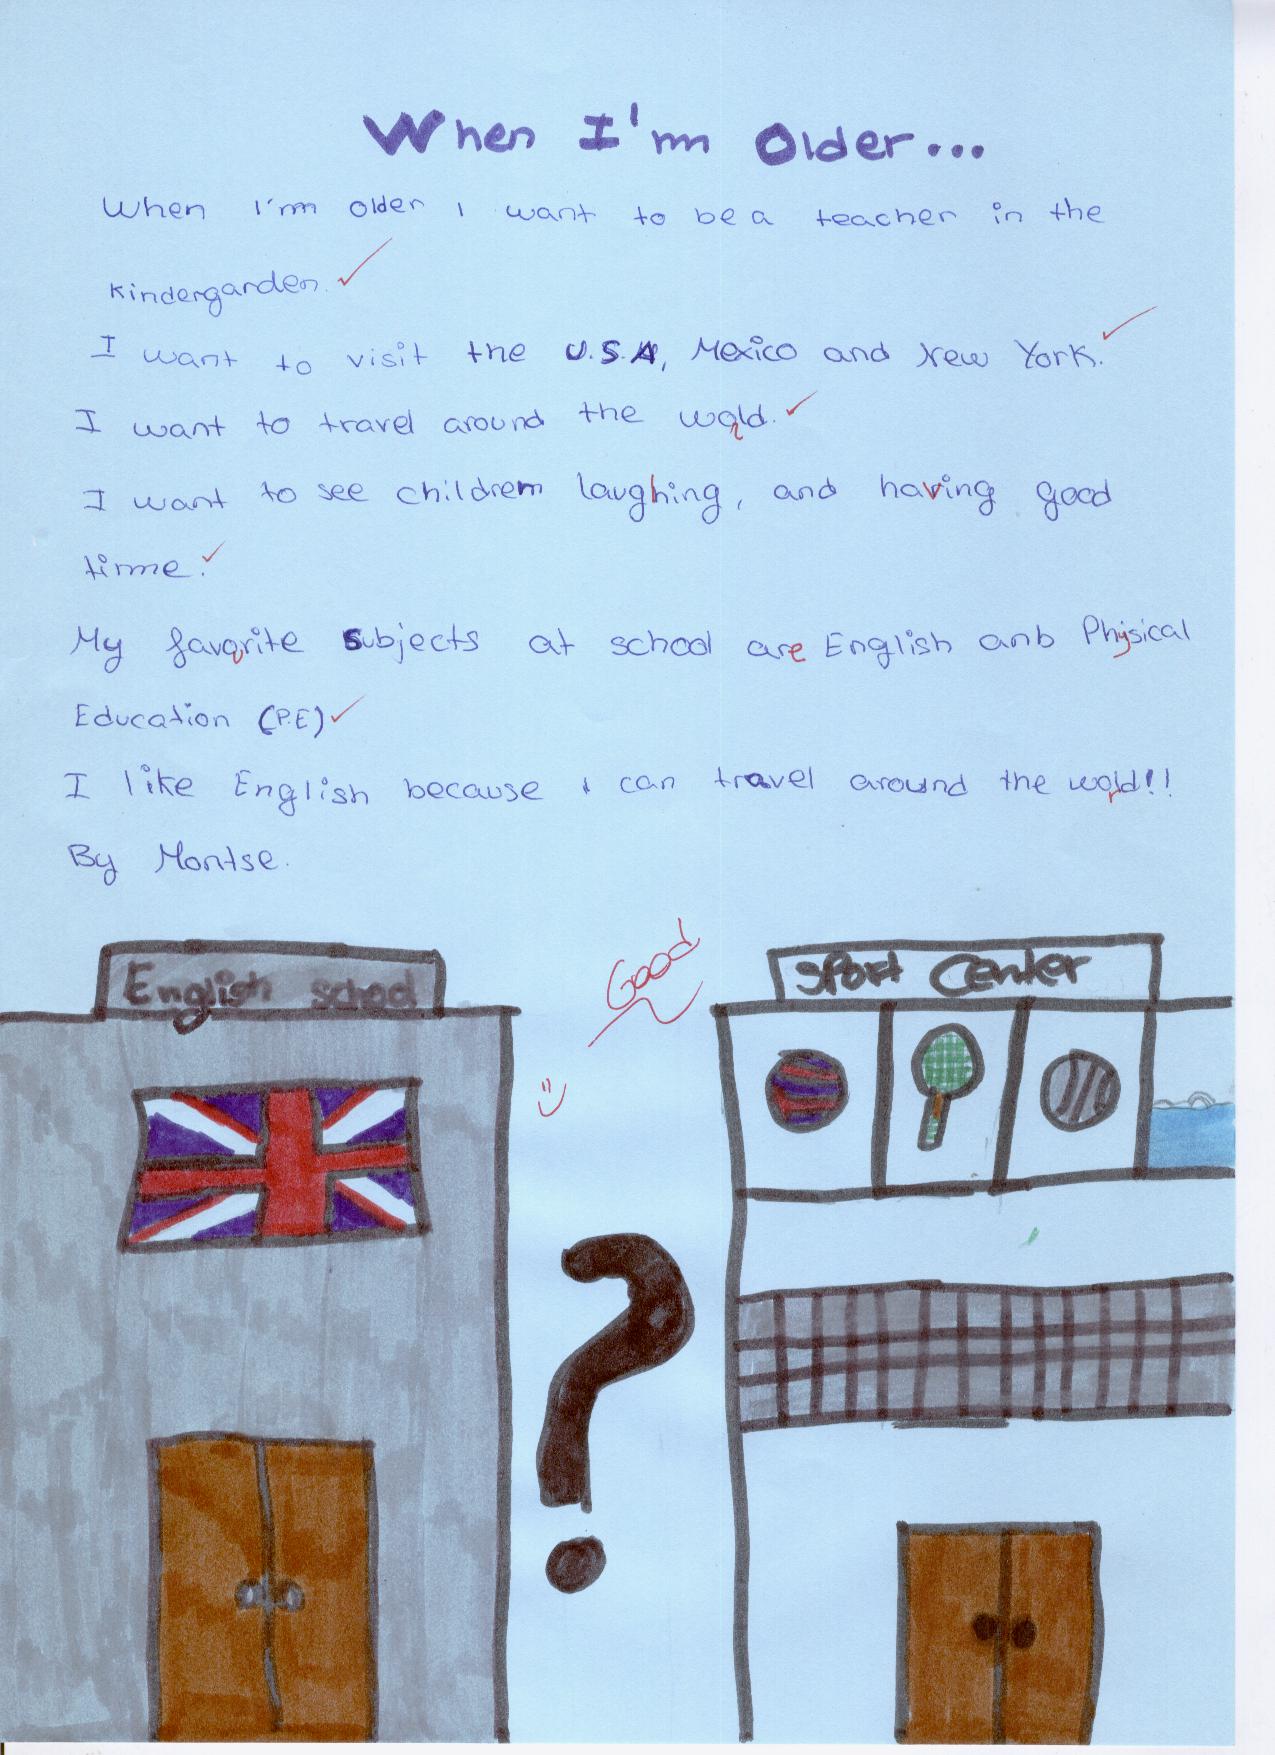 When I'm Older...
When I'm older I want to be a teacher in the
kindergarden.
I want to visit the U.S.A, Mexico and New York.
I want to travel around the world.
I want to see childrem laughing, and having good
time.
My favorite subjects at school are English anb Physical
Education (P.E)
I like English because I can travel around the world!!
By Montse.
Good
English school
Sport Center